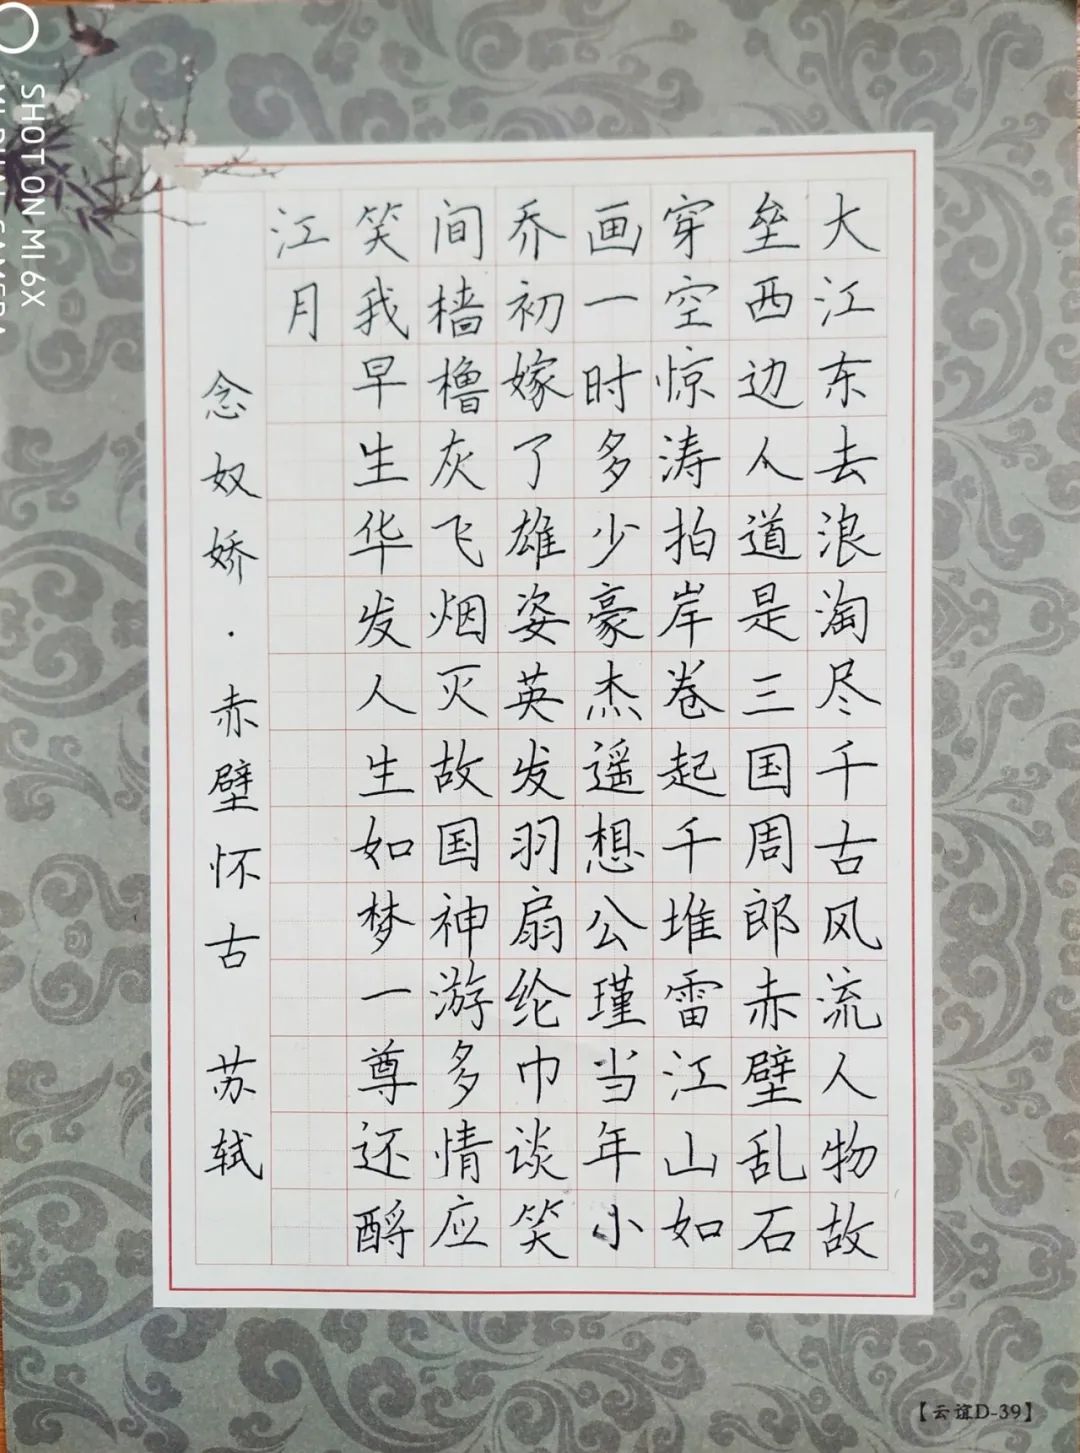 大江东去浪淘尽千古风流人物故
垒西边人道是三国周郎赤壁乱石
穿空惊涛拍岸卷起千堆雷江山如
画一时多少豪杰遥想公瑾当年小
乔初嫁了雄姿英发羽扇纶巾谈笑
间樯橹灰飞烟灭故国神游多情应
笑我早生华发人生如梦一尊还酹
江月
念奴娇·赤壁怀古 苏轼
SHOT ON MI 6X
【云谊D-39】